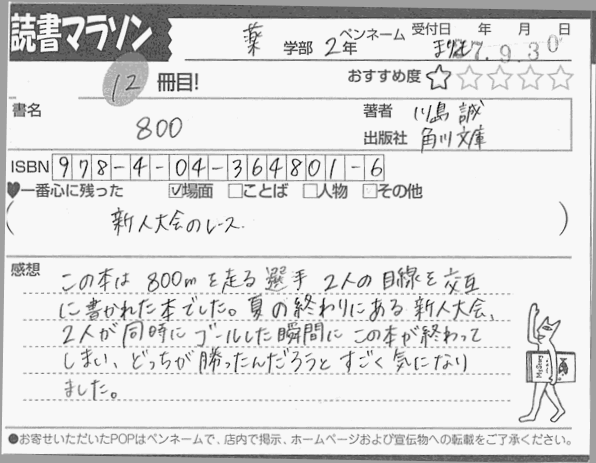 読書マラソン
薬 学部 2年 ペンネーム まりも 受付日 年 月 日
7.9.30
12 冊目! おすすめ度 ★☆☆☆☆
書名 800
著者 川島 誠
出版社 角川文庫
ISBN 978-4-04-364801-6
♥一番心に残った ☑場面 □ことば □人物 □その他
( 新人大会のレース. )
感想
この本は 800mを走る 選手 2人の目線を交互
に書かれた本でした。夏の終わりにある新人大会、
2人が同時に ゴールした瞬間に この本が終わって
しまい、どっちが勝ったんだろうと すごく気になり
ました。
●お寄せいただいたPOPはペンネームで、店内で掲示、ホームページおよび宣伝物への転載をご了承ください。